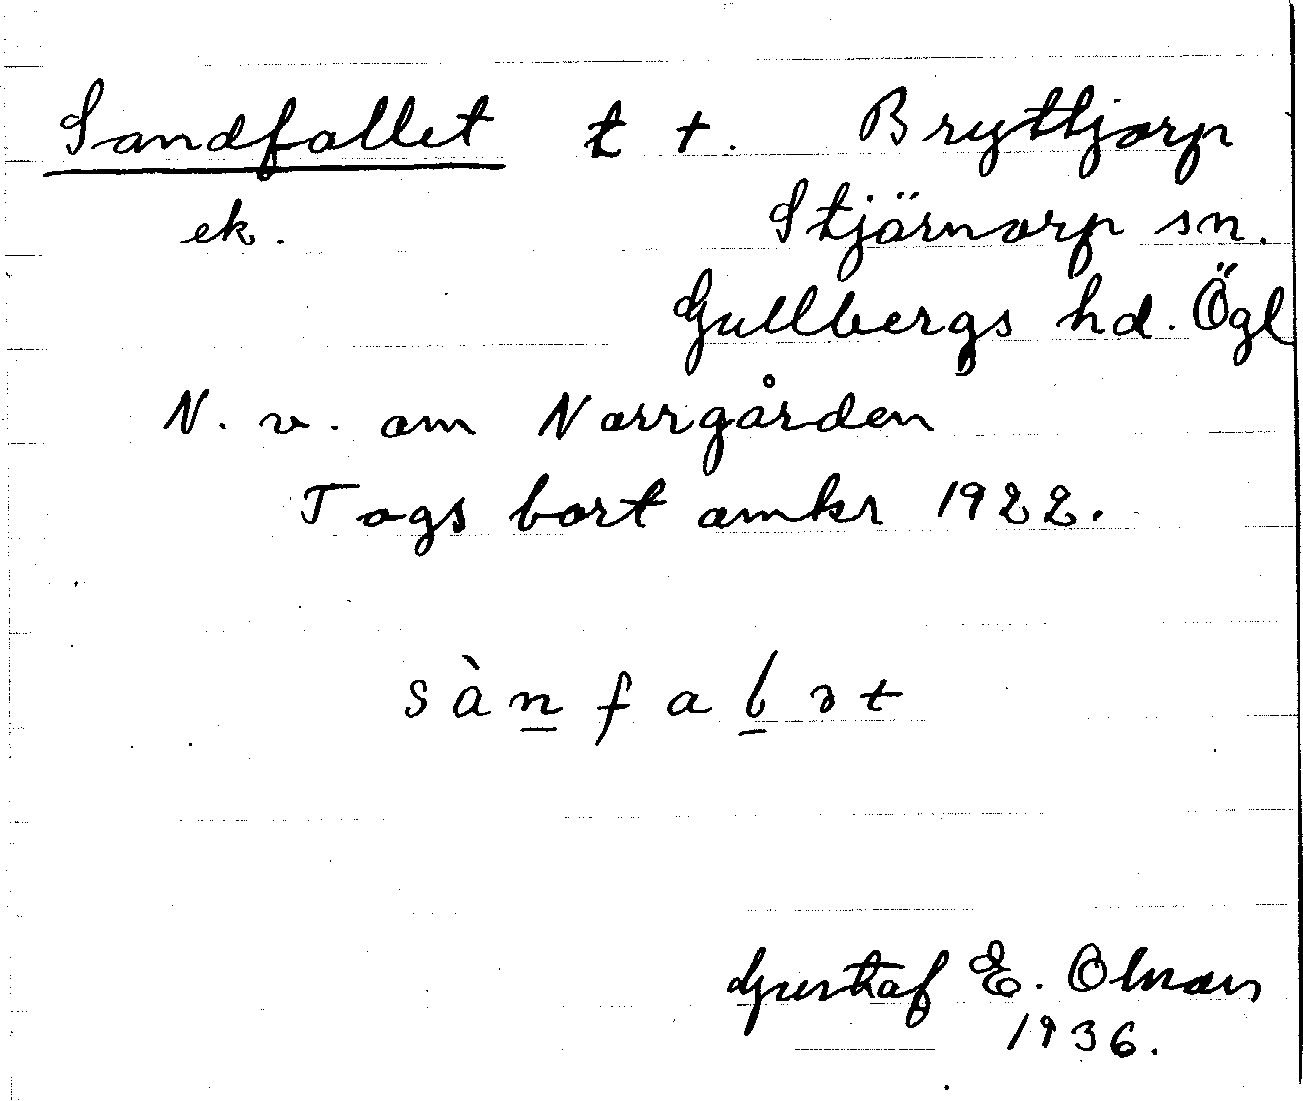 Sandfallet t +. Bryttjorp
ek. Stjärnorp sn.
Gullbergs hd. Ögl
N. v. om Norrgården
Togs bort omkr 1922.
sànfalət
Gustaf E. Olman
1936.